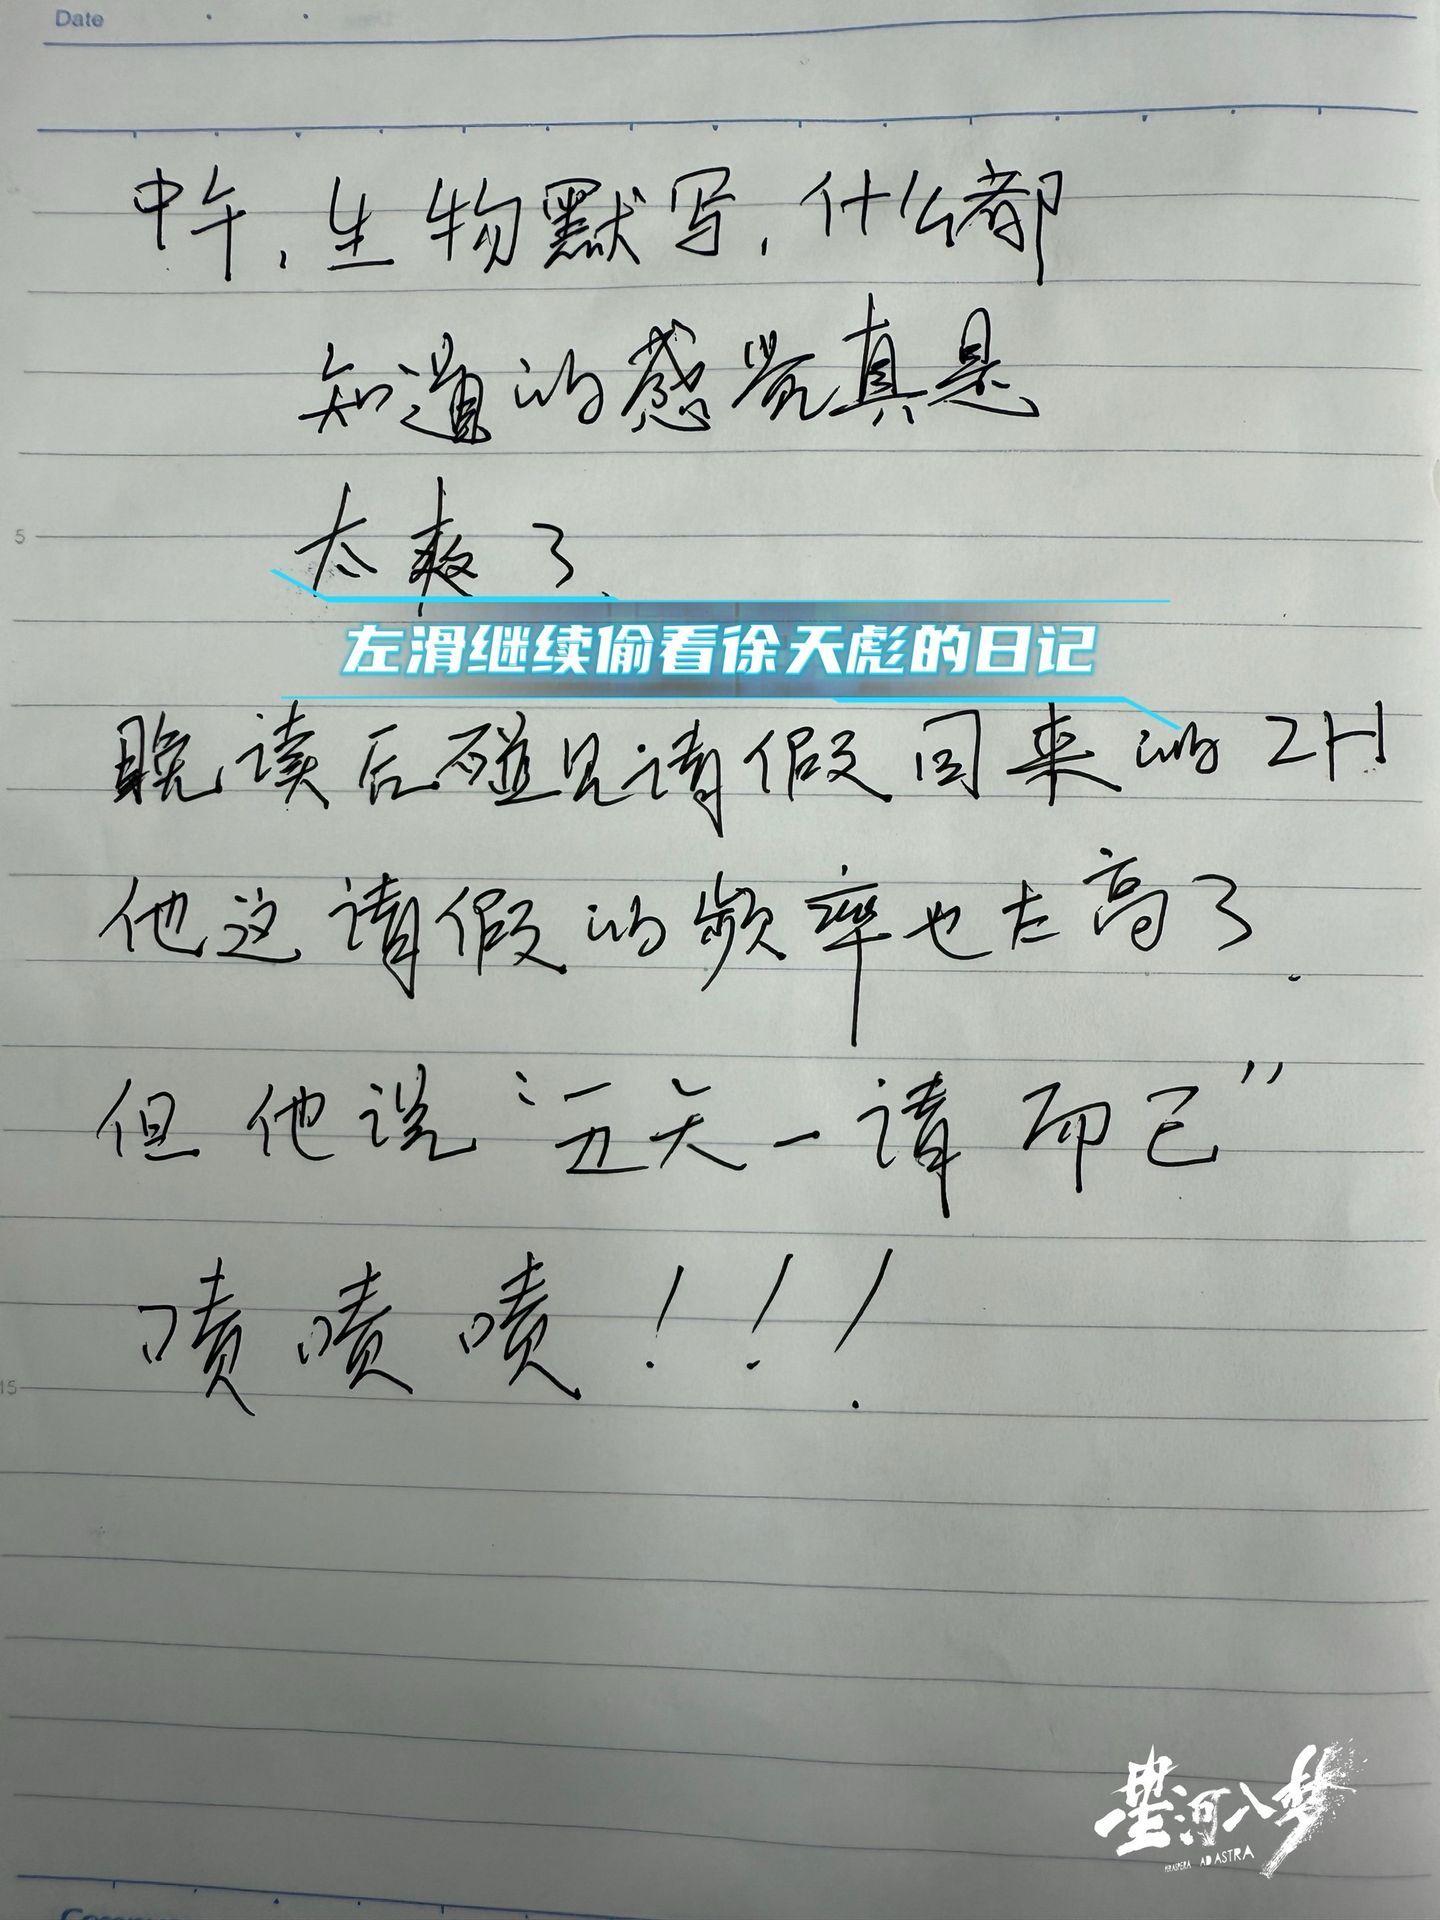 Date
中午,生物默写,什么都
知道的感觉真是
太爽了、
左滑继续偷看徐天彪的日记
晚读后碰见请假回来的ZH
他这请假的频率也太高了.
但他说“五天一请而已”
啧啧啧!!!
5
15
星河入梦
PER ASPERA AD ASTRA